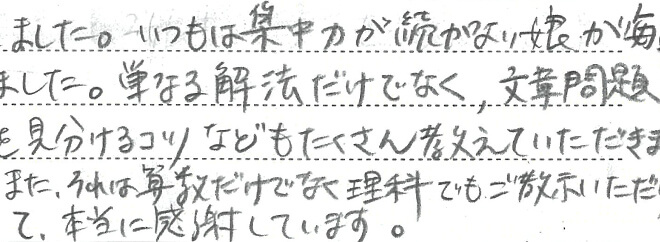 ました。いつもは集中力が続かない娘が毎
ました。単なる解法だけでなく,文章問題
を見分けるコツなどもたくさん教えていただきま
また、それは算数だけでなく理科でもご教示いただ
て、本当に感謝しています。